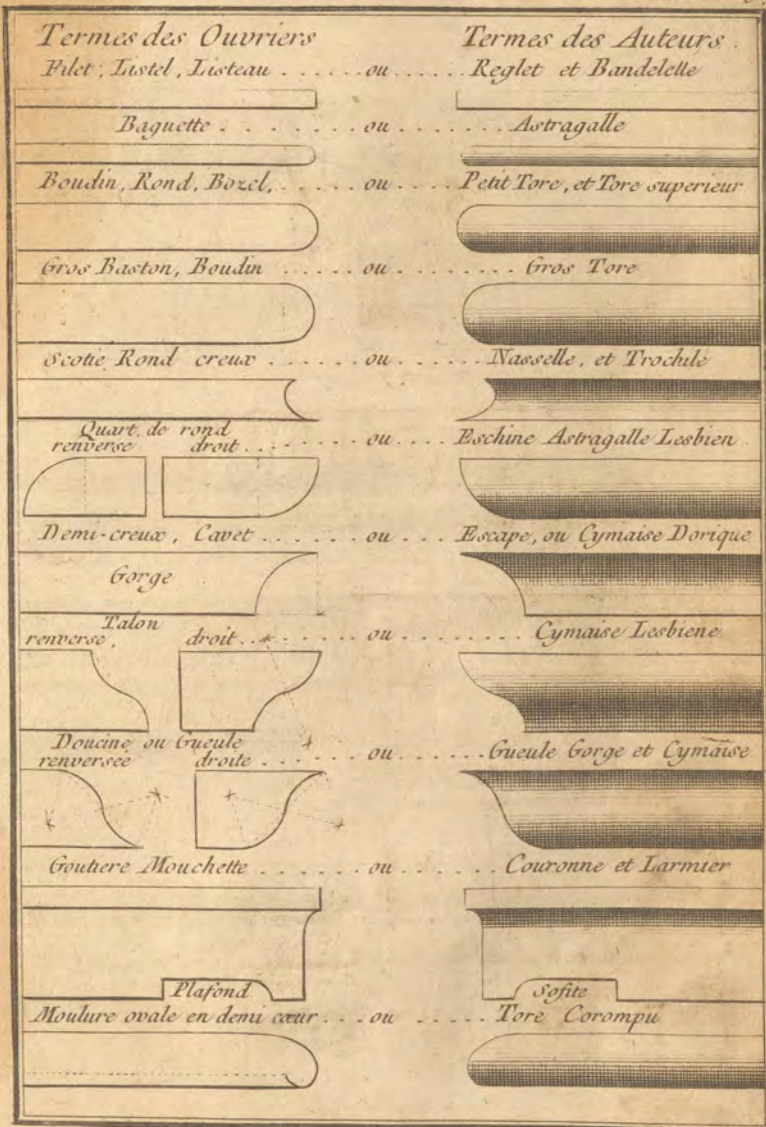 Termes des Ouvriers Termes des Auteurs.
Filet, Listel, Listeau ..... ou ..... Reglet et Bandelette
Baguette ..... ou ..... Astragalle
Boudin, Rond, Bozel, ..... ou ..... Petit Tore, et Tore superieur
Gros Baston, Boudin ..... ou ..... Gros Tore
Scotie Rond creux ..... ou ..... Nasselle, et Trochile
Quart de rond
renverse droit ..... ou ..... Eschine Astragalle Lesbien
Demi-creux, Cavet ..... ou ..... Escape, ou Cymaise Dorique
Gorge
Talon
renverse, droit ..... ou ..... Cymaise Lesbiene
Doucine ou Gueule
renversée droite ..... ou ..... Gueule Gorge et Cymaise
Goutiere Mouchette ..... ou ..... Couronne et Larmier
Plafond Sofite
Moulure ovale en demi cœur ... ou ..... Tore Corompu